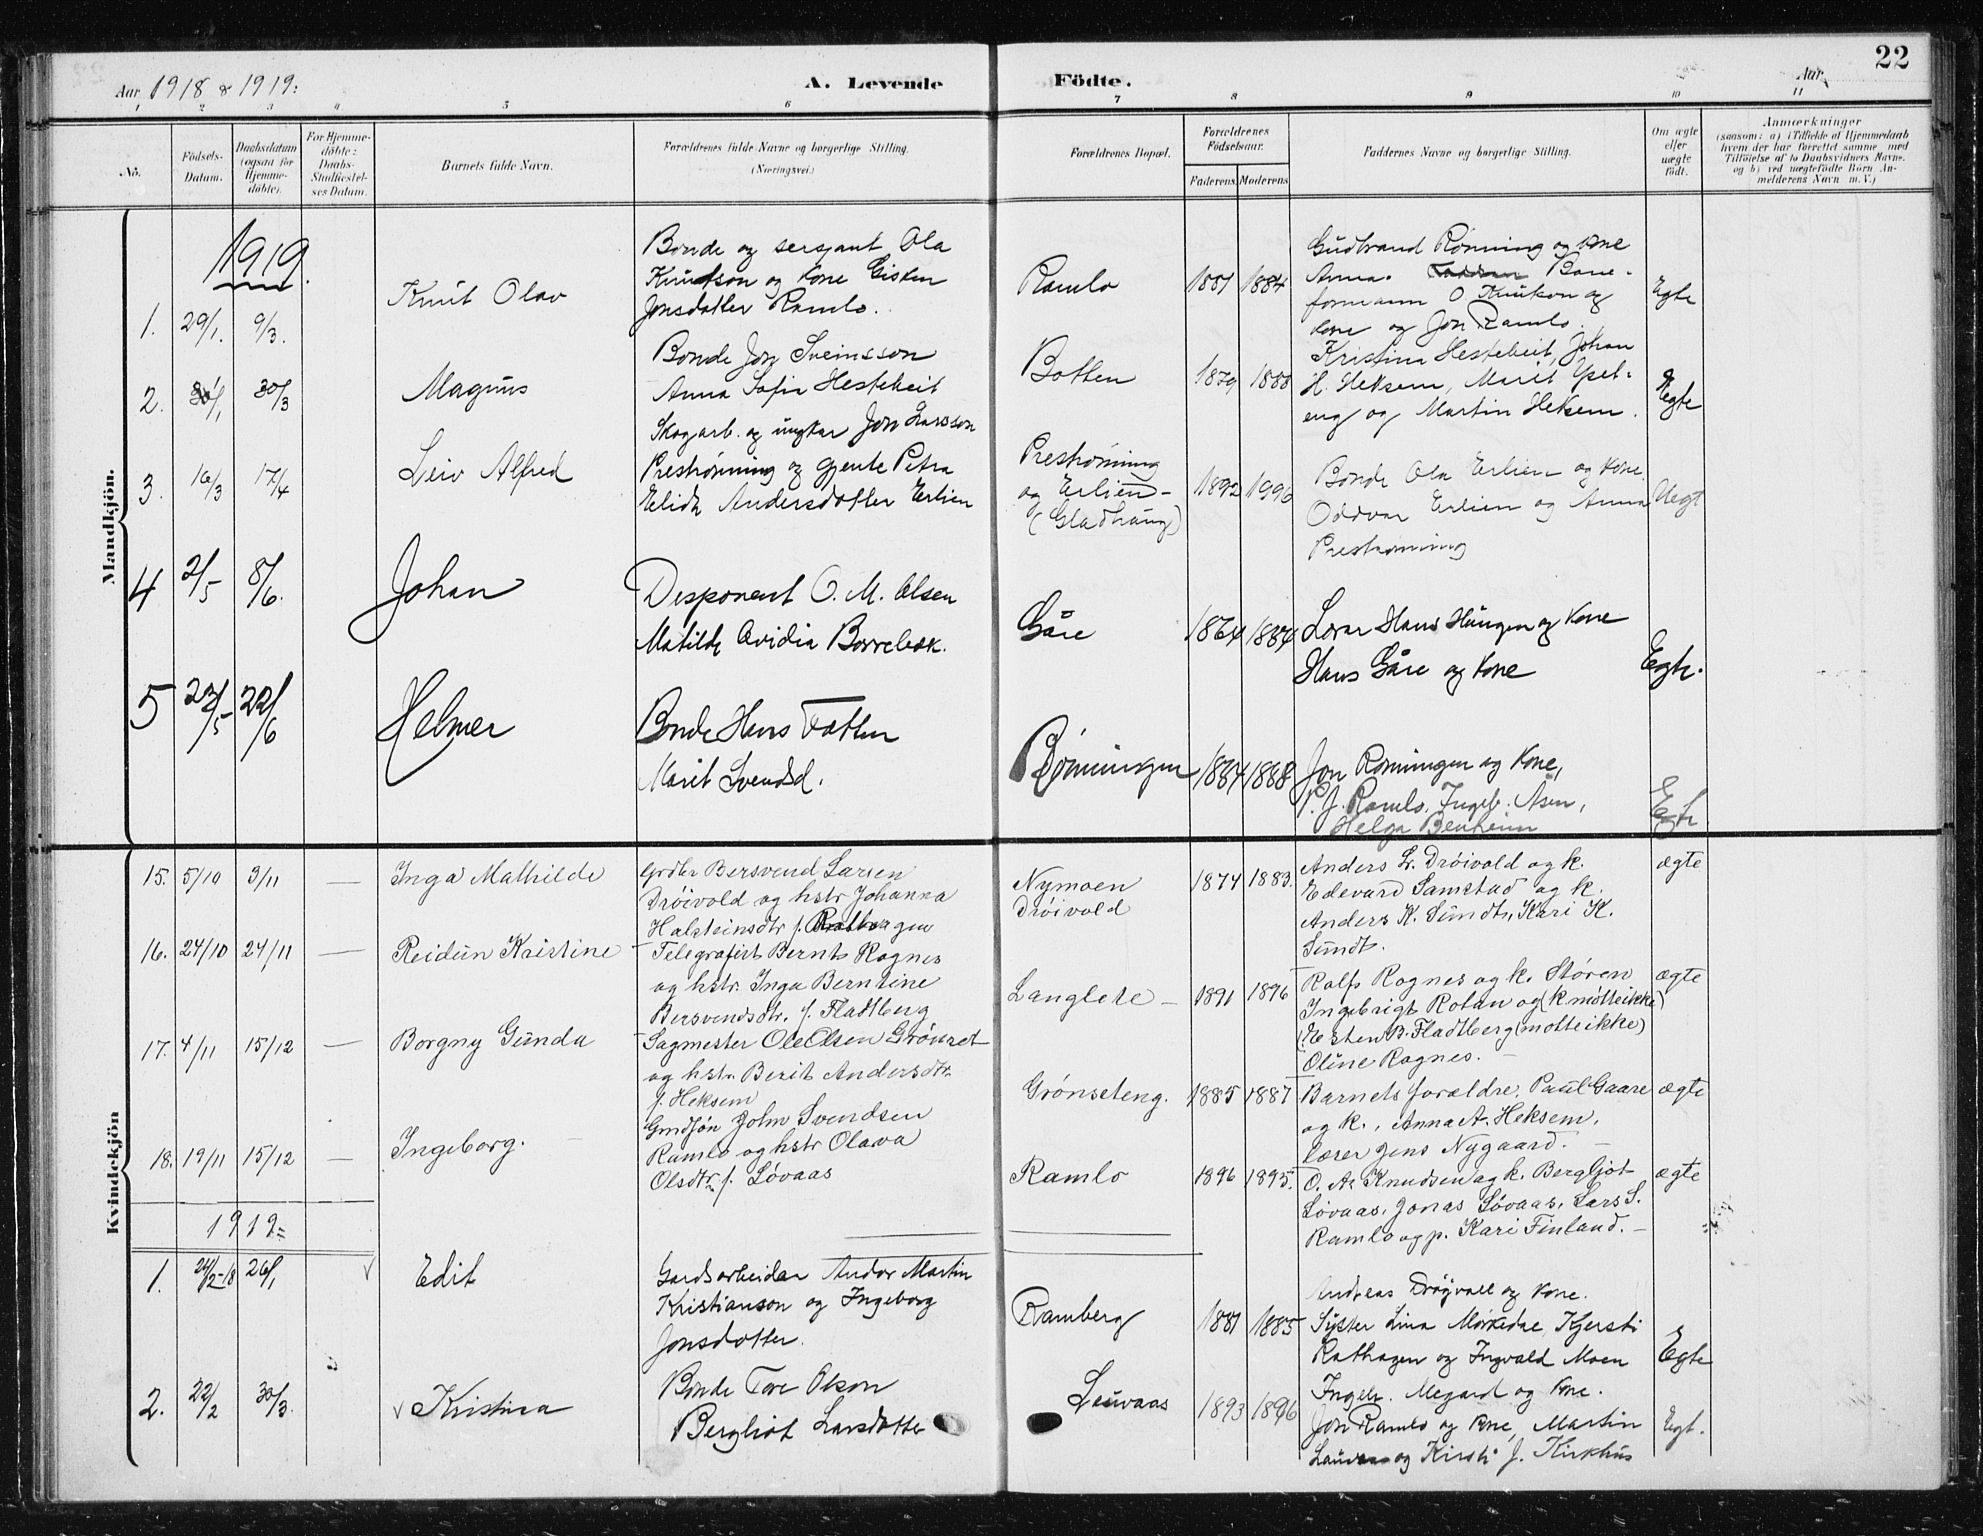 22
Aar 1918 & 1919.
A. Levende
Födte.
Aar
1 2 3 4 5 6 7 8 9 10 11
No.
Födsels-Datum.
Daabsdatum (ogsaa for Hjemme-döbte).
For Hjemme-döbte: Daabs-Stadfæstel-ses Datum.
Barnets fulde Navn.
Forældrenes fulde Navne og borgerlige Stilling.
(Næringsvei.)
Forældrenes Bopæl.
Forældrenes Födselsaar.
Faderens. Moderens.
Faddernes Navne og borgerlige Stilling.
Om ægte eller uægte födt.
Anmærkninger
(saasom: a) i Tilfælde af Hjemmedaab
hvem der har forrettet samme med
Tilföielse af to Daabsvidners Navne.
og b) ved uægtefödte Börn An-
melderens Navn m. V.)
Mandkjön.
1919.
1. 29/1. 9/3.
Knut Olav
Bonde og sersjant Ola
Knutson og kone Gisken
Jonsdatter Ramlo.
Ramlo
1881 1884
Gudbrand Rønning og kone
Anna. Bane-
formann O Knutson og
kone og Jon Ramlo.
Egte
2. /1 30/3
Magnus
Bonde Jon Sveinsson
Anna Sofie Hesteheit
Botten
1879 1888
Kristina Hesteheit, Johan
H. Heksem, Marit Yset-
eng og Martin Heksem.
Egte
3. 16/3 17/4
Leiv Alfred
Skogarb. og ungkar Jon Larsson
Prestrønning og gjente Petra
Elide Andersdotter Erlien
Prestrønning
og Erlien-
(Gladhaug)
1892 1996
Bonde Ola Erlien og kone
Oddvar Erlien og Anna
Prestrønning
Uegt
4 2/5 8/6.
Johan
Disponent O. M. Olsen
Matilde Ovidia Borrebæk.
Gåre
1864 1884
Lærar Hans Haugen og kone
Hans Gåre og kone
Egte.
5 23/5 22/6
Helmer
Bonde Hans Fatten
Marit Svendsd.
Rønningen
1884 1888
Jon Rønningen og kone,
P. J. Ramlo, Ingeb. Åsen,
Helga Benheim
Egte
Kvindekjön
15. 5/10 3/11 —
Inga Mathilde
Grdbr Bersvend Larsen
Drøivold og hstr Johanna
Halsteinsdtr f. Rathagen
Nymoen
Drøivold
1874 1883.
Anders L. Drøivold og k.
Edevard Samstad og k.
Anders K. Sundt, Kari K.
Sundt.
ægte
16. 24/10 24/11 —
Reidun Kristine
Telegrafist Bernt Rognes
og hstr. Inga Berntine
Bersvendsdtr. f. Fladtberg
Langlete —
1891 1896
Rolf Rognes og k. Støren
Ingebrigt Rotan og (k møtte ikke)
(Esten B. Fladtberg (møtte ikke)
Oline Rognes. —
ægte
17. 4/11 15/12 —
Borgny Gunda
Sagmester Ole Olsen Grønset
og hstr. Berit Andersdtr.
f. Heksem
Grønseteng.
1885 1887
Barnets forældre, Paul Gaare
og k., Anna A. Heksem,
lærer Jens Nygaard. —
ægte
18. 19/11 15/12 —
Ingeborg.
Gmdsjøn John Svendsen
Ramlo og hstr Olava
Olsdtr. f. Løvaas
Ramlo
1896 1895.
O. A. Knudsen og k. Bergljot
Løvaas, Jonas Løvaas, Lars S.
Ramlo og p. Kari Finland. —
ægte
1919
1. 24/2-18 26/1
Edit
Gardsarbeidar Andor Martin
Kristianson og Ingeborg
Jonsdotter.
Ramberg
1881 1885
Andreas Drøyvall og kone.
Syster Lina Mørkedae, Kjersti
Rathagen og Ingvald Moen
Egte
2. 22/2 30/3.
Kristina
Bonde Tore Olson
Bergliot Larsdotter
Leuvaas
1893 1896
Ingebr. Megard og kone.
Jon Ramlo og kone, Martin
Lauvaas og Kirsti J. Kirkhus
Egt.